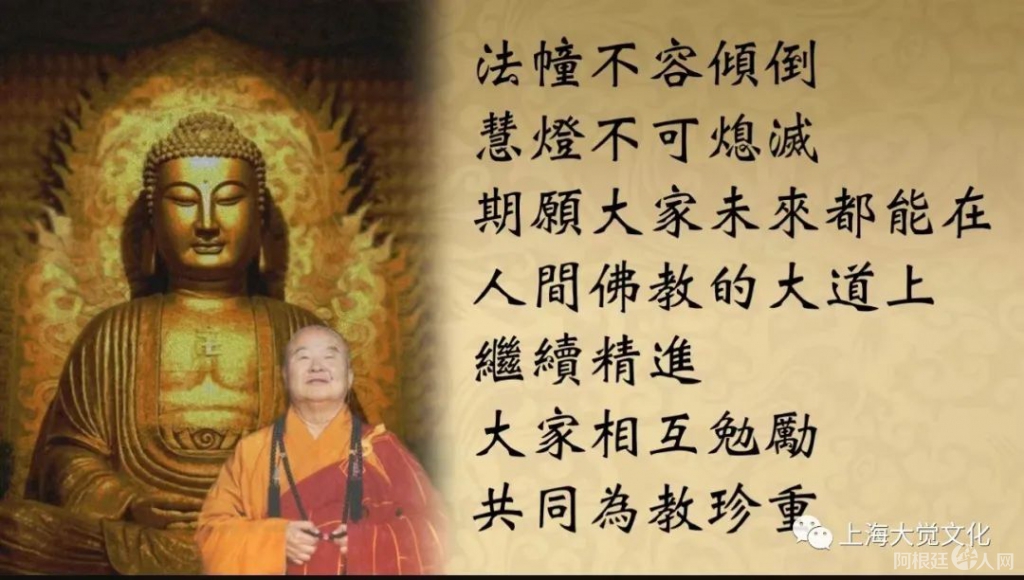 法幢不容傾倒
慧燈不可熄滅
期願大家未來都能在
人間佛教的大道上
繼續精進
大家相互勉勵
共同為教珍重
上海大觉文化
阿根廷华人网